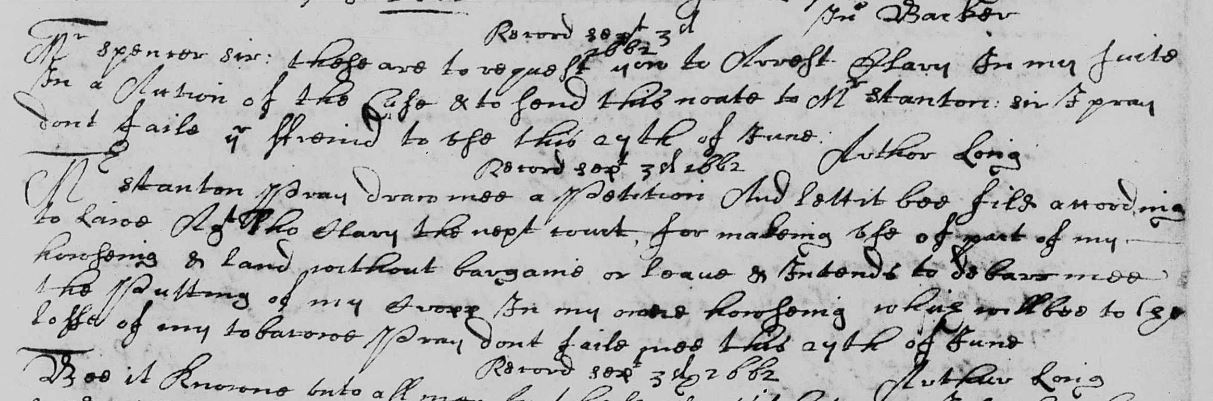 Jno Barker
Record sept 3d 1662
Mr spencer sir: these are to request you to Arrest Clary In my suite
In a Action of the Case & to send this noate to Mr stanton: sir I pray
dont faile yr ffreind to vse this 27th of June: Arthor Long
Record sept 3d 1662
Mr stanton Pray draw mee a Petition And lett it bee file according
to Lawe Agt Tho Clary the next Court, for makeing vse of part of my
howseing & land without bargaine or leave & Intends to debarr mee
the Putting of my Cropp In my owne howseing which will bee to the
losse of my tobaccoe Pray dont faile mee this 27th of June
Record sept 3d 1662 Arthur Long
Bee it Knowne vnto all men